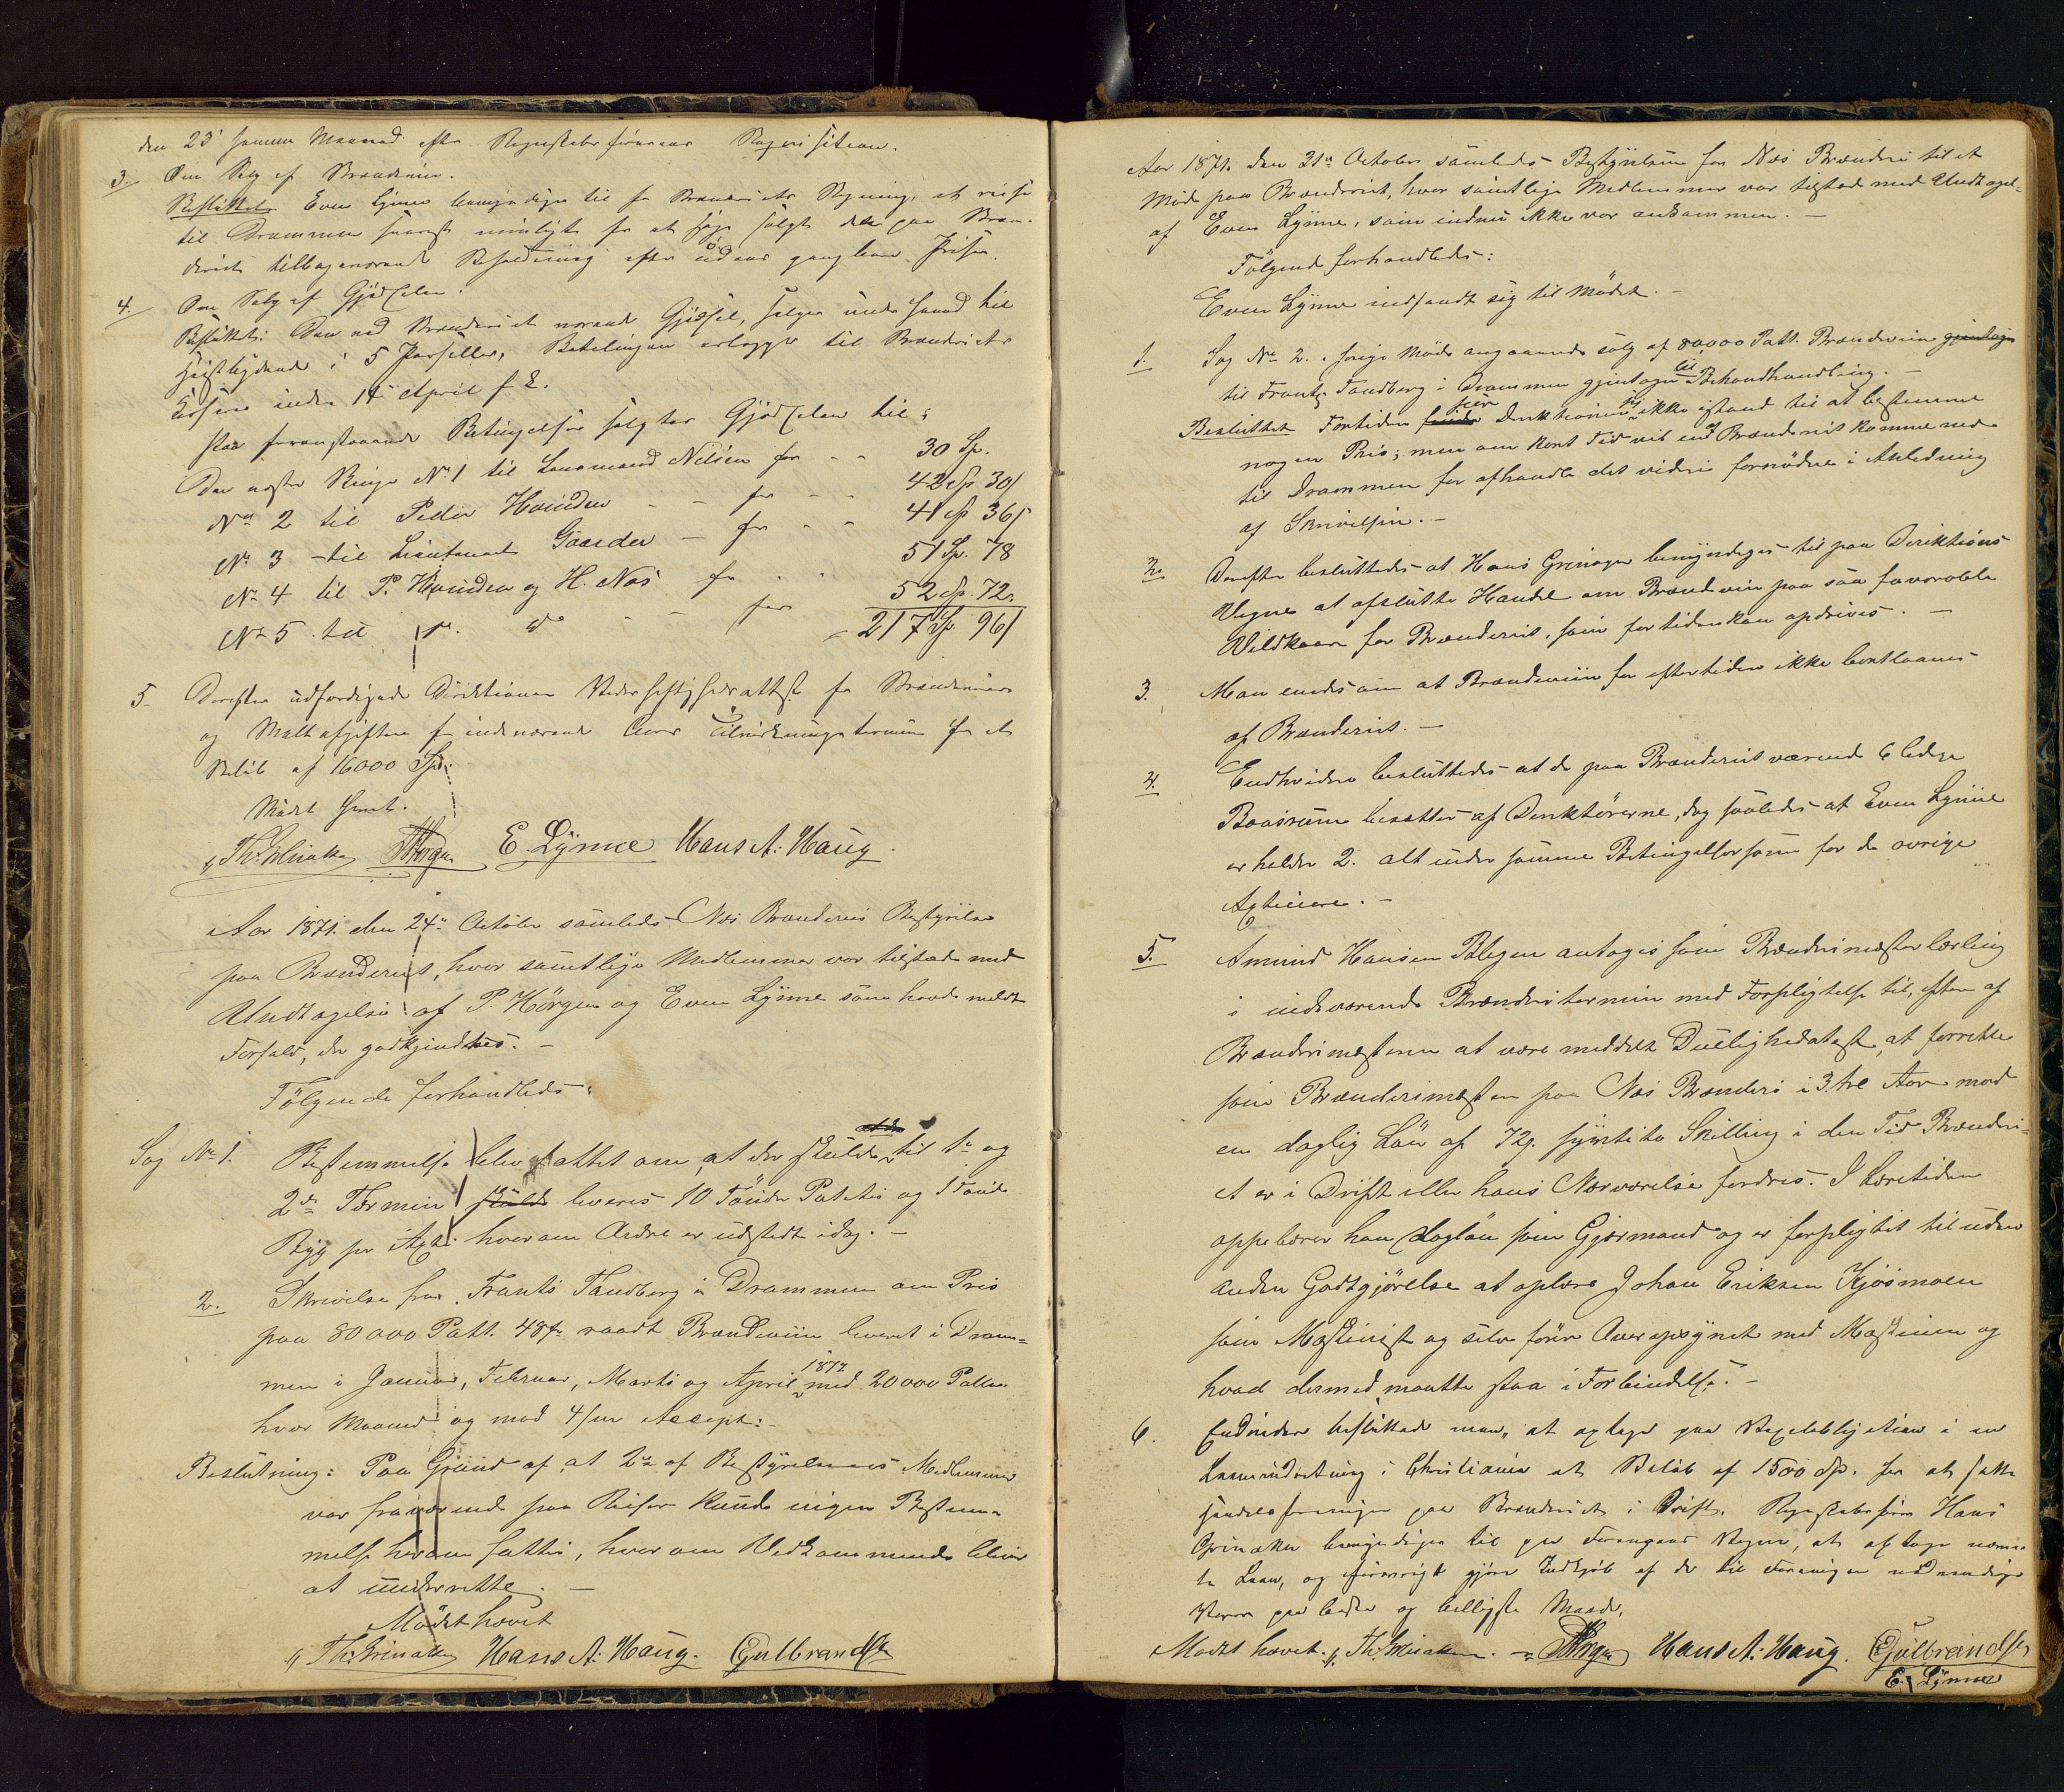 den 23' samme Maaned efter Regnskabsførerens Reqvisition.
3. Om Salg af Brændeviin.
Besluttet: Even Lÿnne bemyndiges til for Brænderiets Regning at reise
til Drammen snarest muligt for at søge solgt den paa Bræn-
deriet tilbageværende Beholdning efter gangbare Priser.
4. Om Salg af Gjødselen.
Besluttet: Den ved Brænderiet værende Gjødsel, sælges under haand til
Høistbydende i 5 Parseller, Betalingen erlægges til Brænderiets
Kasse inden 14 April f. A.
Paa foranstaaende Betingelser solgtes Gjødselen til:
Den østre Binge No 1 til Lensmand Nilsen for - - 30 Sp.
No 2 til Peder Hvinden - - for - - 42 Sp 30/
No 3 - til Lieutenant Gaarder - for - - 41 Sp 36/
No 4 til P. Hvinden og H. Næs for . . 51 Sp. 78
No 5 til do do - - for 52 Sp. 72.
- 217 Sp. 96/
5. Derefter udfærdigede Direktionen Vederheftighedsattest for Brændeviins
og Maltafgiften for indeværende Aars Tilvirkningstermin for et
Beløb af 16000 Spd.
Mødet hævet.
Th: Grinaker PHørgen E. Lÿnne Hans A: Haug.
Aar 1871. den 24de October samledes Næs Brænderis Bestyrelse
paa Brænderiet, hvor samtlige Medlemmer var tilstæde med
Undtagelse af P. Hørgen og Even Lÿnne som havde meldt
Forfald, der godkjendtes. -
Følgende forhandledes:
Sag No 1. Bestemmelse blev fattet om, at der skulde til 1ste og
2den Termin skulde leveres 10 Tønder Poteter og 1 Tønde
Byg pr Actie hvorom Ordre er udstedt idag. -
2. Skrivelse fra Frants Tandberg i Drammen om Pris
paa 80000 Pott. 48% raadt Brændeviin leveret i Dram=
men i Januar, Februar, Marts og April 1872 med 20000 Potter
hver Maaned og mod 4/m Accept:-
Beslutning: Paa Grund af at 2de af Bestyrelsens Medlemmer
var fraværende paa Reiser kunde ingen Bestem-
melse herom fattes, hvorom Vedkommende bliver
at underrette. -
Mødet hævet
Th: Grinaker Hans A: Haug. Gulbrandsen
Aar 1871. den 31te October samledes Bestyrelsen for Næs Brænderi til et
Møde paa Brænderiet, hvor samtlige Medlemmer var tilstæde med Undtagel-
af Even Lÿnne, som indnu ikke var ankommen. -
Følgende forhandledes:
Even Lÿnne indfandt sig til Mødet. -
1. Sag No 2. i forrige Møde angaaende salg af 80,000 Pott. Brændeviin gjentages
til Frantz Tandberg i Drammen gjentages til Behandhandling. -
Besluttet Fortiden ser Direktionen sig ikke istand til at bestemme
nogen Pris; men om kort Tid vil en af Brænderiet komme ned
til Drammen for afhandle det videre fornødne i Anledning
af Skrivelsen. -
2. Derefter besluttedes at Hans Grinager bemyndiges til paa Direktions
Vegne at afslutte Handel om Brændeviin paa saa favorable
Vilkaar for Brænderiet, som for tiden kan opdrives. -
3. Man enedes om at Brændeviin for eftertiden ikke bortlaanes
af Brænderiet. -
4. Endhvidere besluttedes at de paa Brænderiet værende 6 ledige
Baasrum besættes af Direktørerne, dog saaledes at Even Lÿnne
erholder 2. alt under samme Betingelser som for de øvrige
Actiener. -
5. Amund Hansen Blegen antages som Brænderimesterlærling
i indeværende Brænderitermin med Forpligtelse til, efter af
Brænderimesteren at være meddelt Duelighedsatest, at forrette
som Brænderimester paa Næs Brænderi i 3. tre Aar mod
en daglig Løn af 72. syvtito Skilling i den Tid Brænderi-
et er i Drift eller hans Nærværelse fordres. I Læretiden
oppebærer han Dagløn som Gjærmand og er forpligtet til uden
anden Godtgjørelse at oplære Johan Eriksen Kjøsmoen
som Maskinist og selv føre Overopsynet med Maskinen og
hvad dermed maatte staa i Forbindelse. -
6. Endvidere besluttede man, at optage paa Vexelobligation i en
Laaneindretning i Christiania et Beløb af 1500 Sp. for at sætte
Handelsforeningen paa Brænderiet i Drift. Regnskabsfører Hans
Grinaker bemyndiges til paa Foreningens Vegne, at optage nævn-
te Laan, og forøvrigt gjøre Indkjøb af de til Foreningen nødvendige
Varer paa bedste og billigste Maade.
Mødet hævet. Th: Grinaker. PHørgen Hans A: Haug. Gulbrandsen
E. Lÿnne